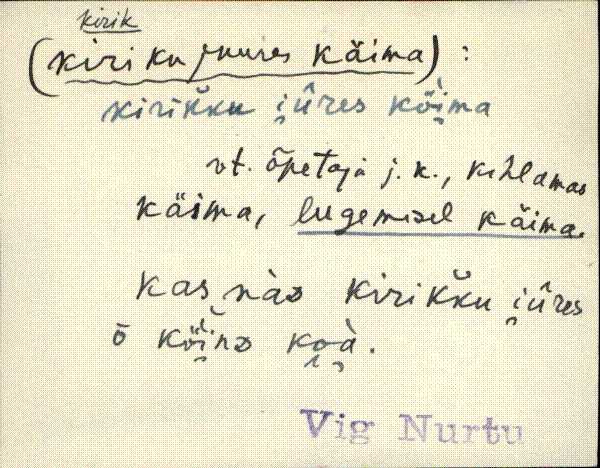 kirik
(kiriku juures käima) :
kirik̆ku i̯ûres kö̀i̯ma
vt. õpetaja j. k., kihlamas
käima, lugemisel käima.
kas nàᴅ kirik̆ku i̯ûres
ō kö̀i̯nᴅ ko̯à.
Vig Nurtu